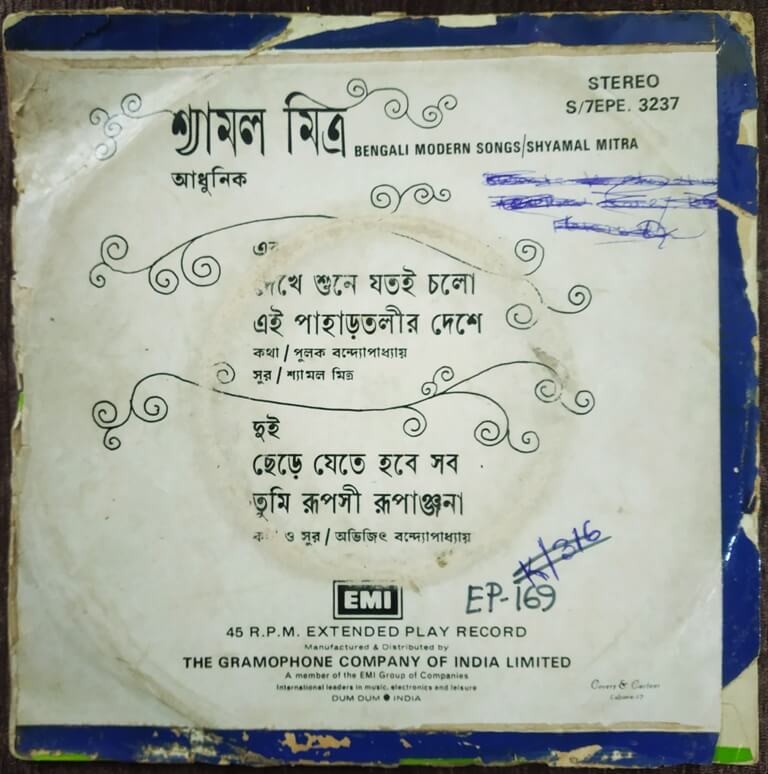 STEREO
S/7EPE. 3237
শ্যামল মিত্র
BENGALI MODERN SONGS/SHYAMAL MITRA
আধুনিক
দেখে শুনে যতই চলো
এই পাহাড়তলীর দেশে
কথা / পুলক বন্দ্যোপাধ্যায়
সুর / শ্যামল মিত্র
দুই
ছেড়ে যেতে হবে সব
তুমি রূপসী রূপাঞ্জনা
ও সুর / অভিজিৎ বন্দ্যোপাধ্যায়
K/316
EP-169
EMI
45 R.P.M. EXTENDED PLAY RECORD
Manufactured & Distributed by
THE GRAMOPHONE COMPANY OF INDIA LIMITED
A member of the EMI Group of Companies
International leaders in music, electronics and leisure
DUM DUM ● INDIA
Covers &